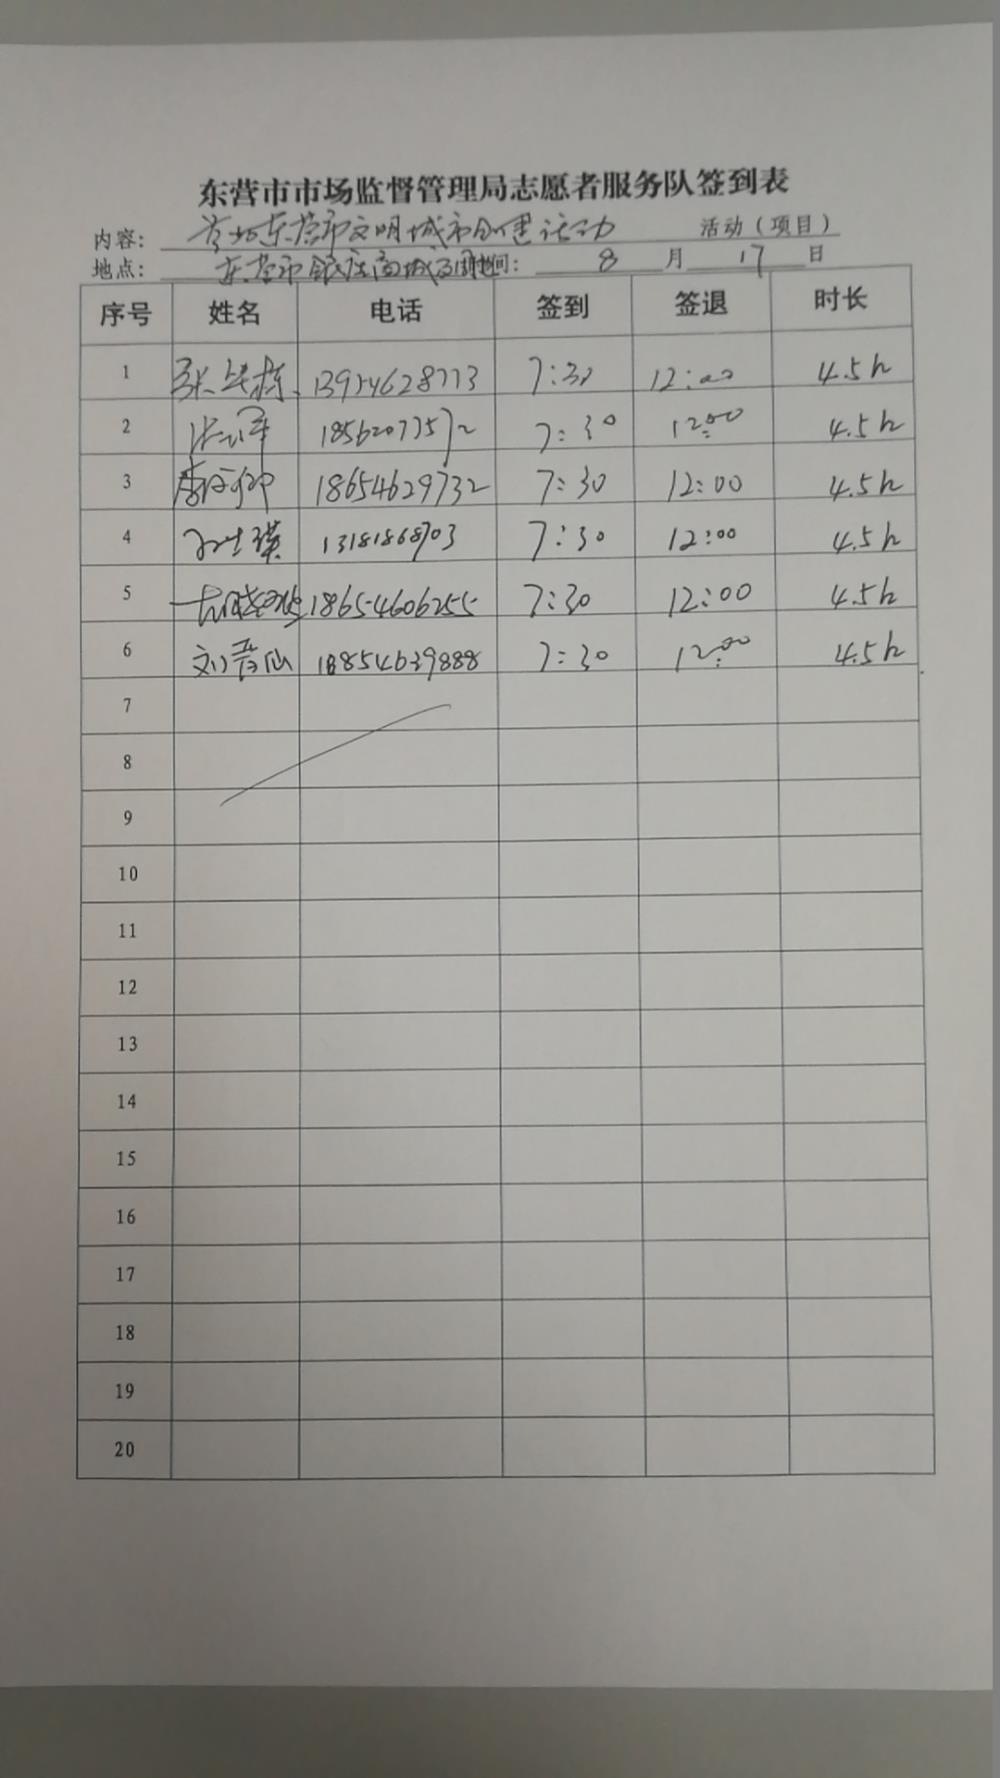 东营市市场监督管理局志愿者服务队签到表
内容: 东营市文明城市创建活动 活动（项目）
地点: 东营市银座商城及周边 时间: 8 月 17 日
序号 姓名 电话 签到 签退 时长
1 13954628773 7:30 12:00 4.5h
2 7:30 12:00 4.5h
3 18654629732 7:30 12:00 4.5h
4 13181868703 7:30 12:00 4.5h
5 18654606255 7:30 12:00 4.5h
6 刘晋仙 18854639888 7:30 12:00 4.5h
7
8
9
10
11
12
13
14
15
16
17
18
19
20